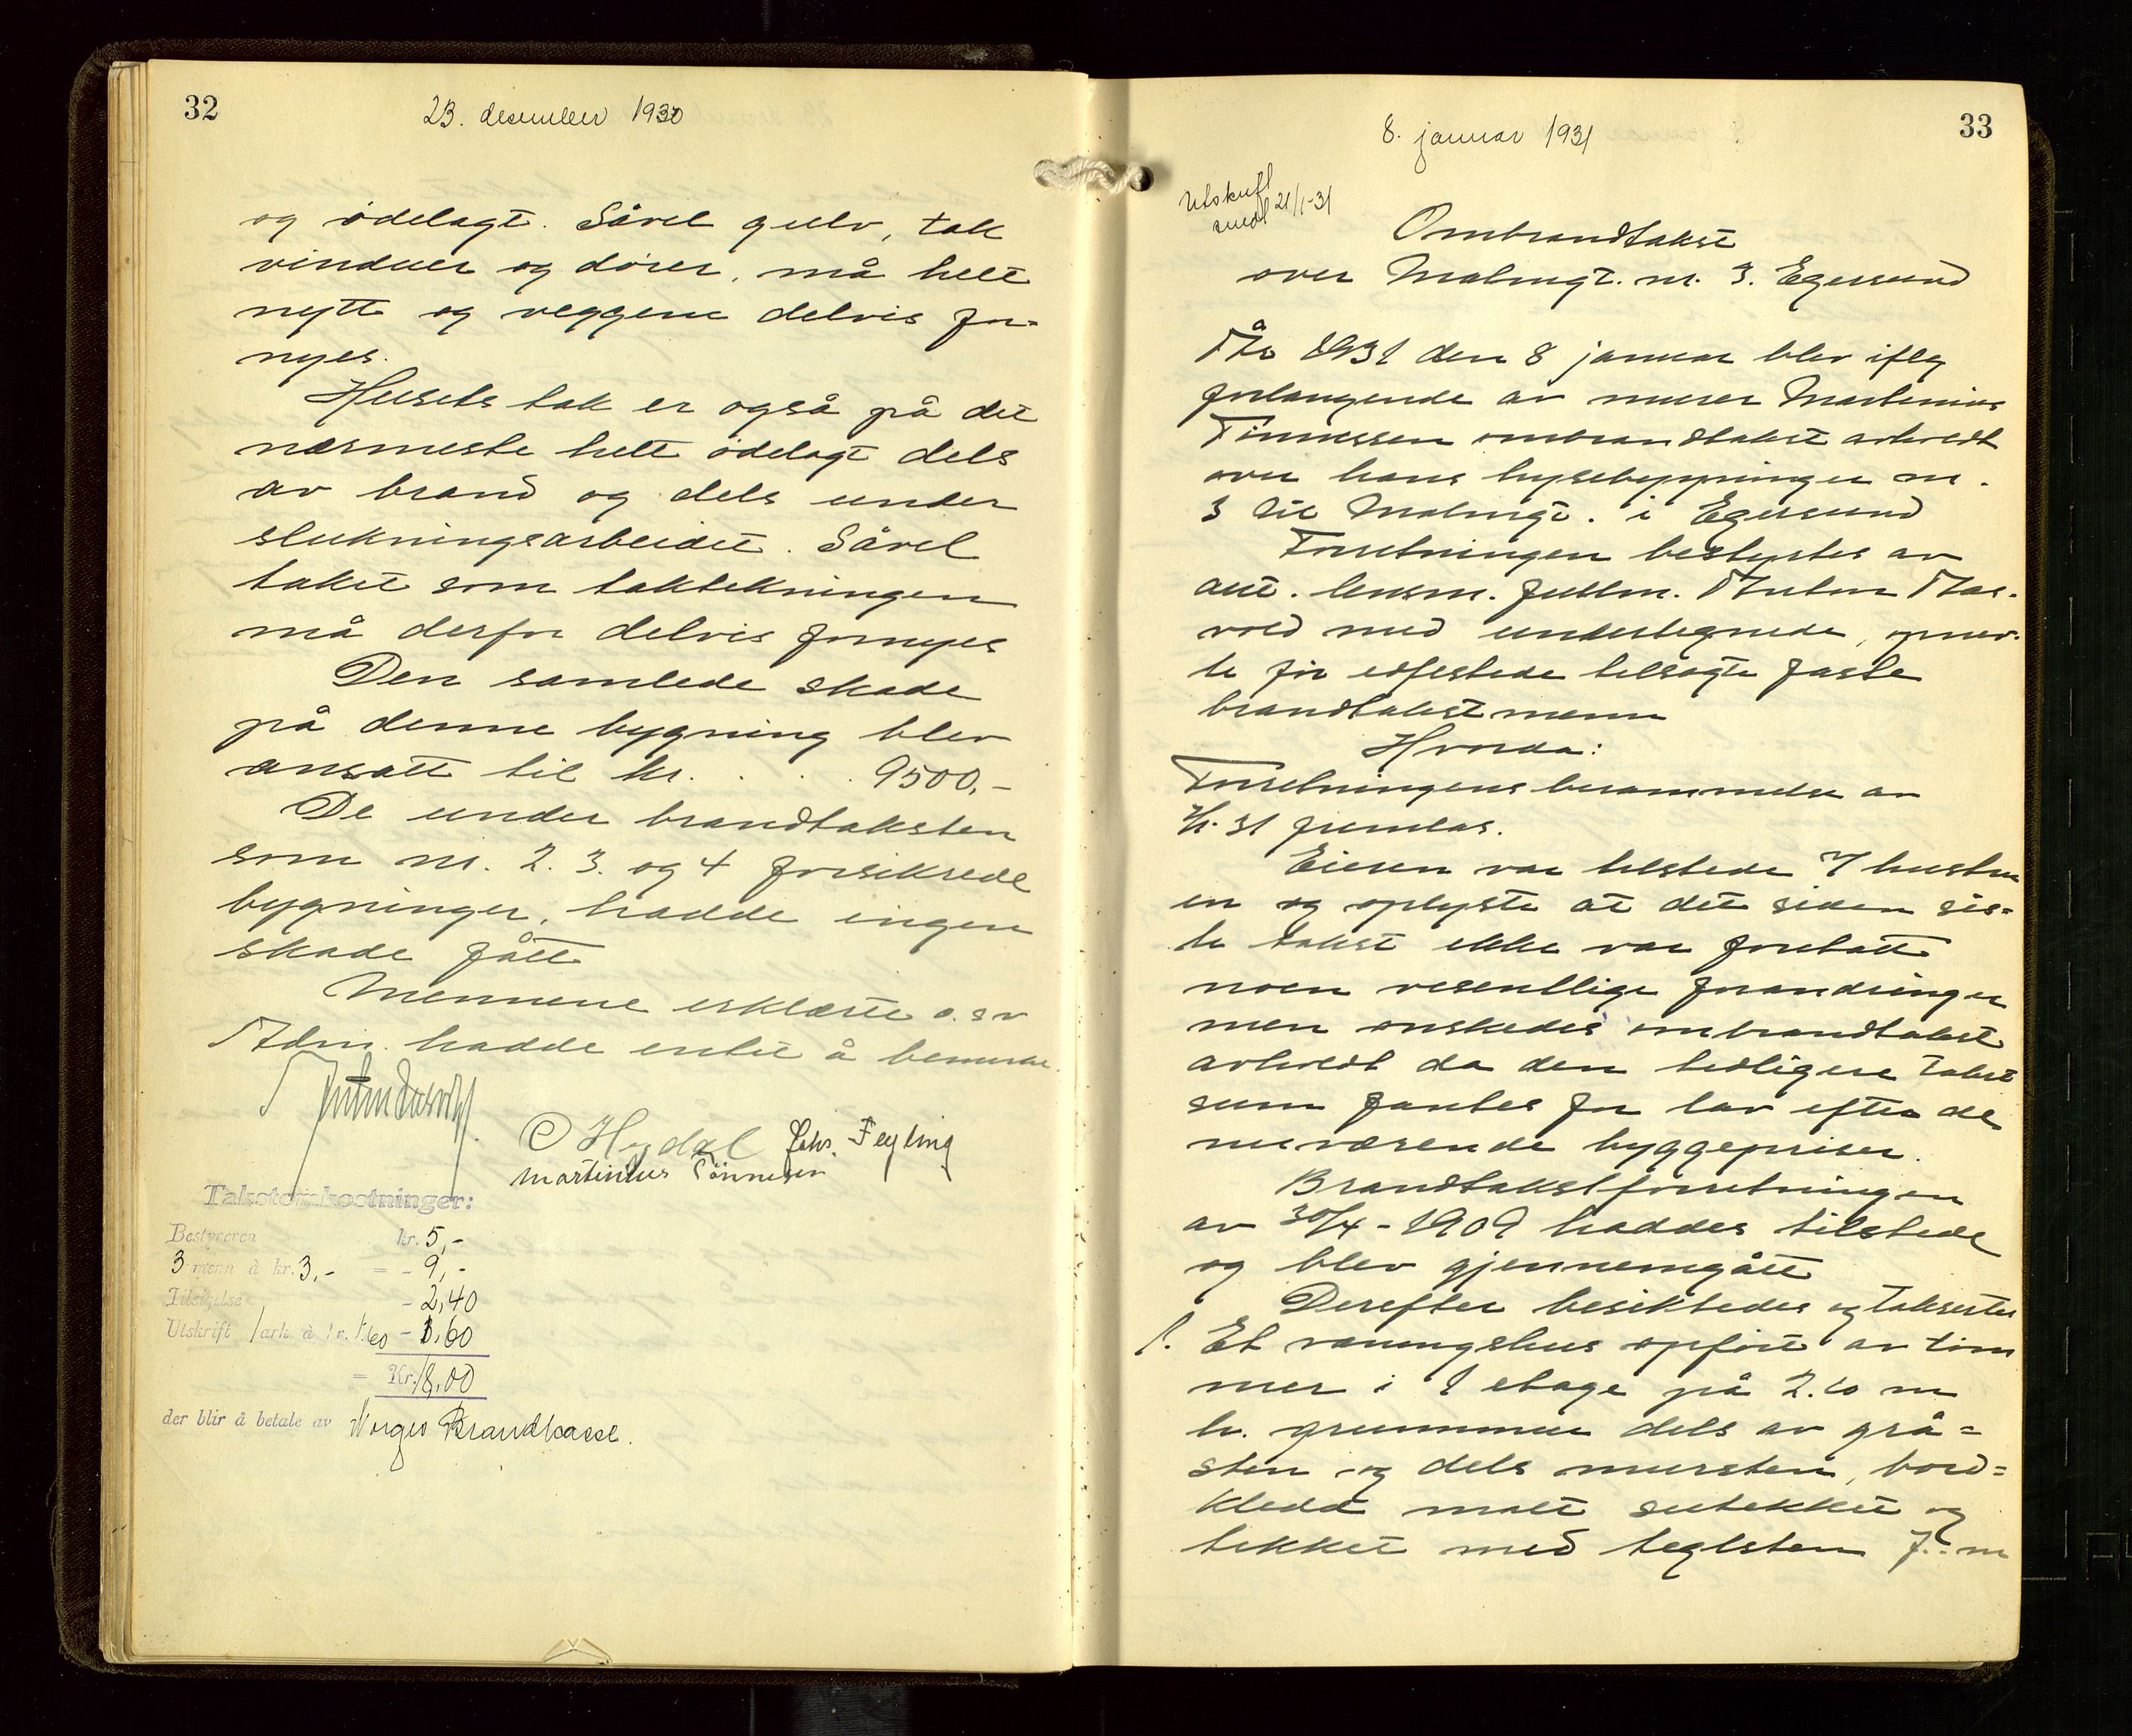 32
23. desember 1930
og ødelagt. Såvel gulv, tak
vinduer og dører, må helt
nytt og veggene delvis for-
nyes.
Husets tak er også på det
nærmeste helt ødelagt dels
av brand og dels under
slukningsarbeidet. Såvel
taket som taktekningen
må derfor delvis fornyes
Den samlede skade
på denne bygning blev
ansatt til kr. . . . 9500,-
De under brandtaksten
som nr. 2. 3. og 4 forsikrede
bygninger, hadde ingen
skade fått
Mennene erklærte o. s v
Adm. hadde intet å bemerke.
C Hødal Johs. Feyling
Martinius Tønnesen
Takstomkostninger:
Bestyreren kr. 5,-
3 menn à kr. 3,- = - 9,-
Tilsigelse - 2,40
Utskrift 1 ark à kr. 1.60 - 1,60
= Kr. 18,00
der blir å betale av Norges Brandkasse.
33
8. januar 1931
Utskrift
sendt 21/1-31
Ombrandtakst
over Malmgt. nr. 3. Egersund
År 1931 den 8 januar blev iflg
forlangende av murer Martinius
Tønnessen ombrandtakst avholdt
over hans husebygninger nr.
3 til Malmgt. i Egersund
Forretningen bestyrtes av
aut. lensm. fullm. Anton Aas-
vold med undertegnede, opnev-
te før edfestede tilsagte faste
brandtakstmenn
Hvorda:
Forretningens berammelse av
31 fremlas.
Eieren var tilstede v/ hustru
en og oplyste at det siden sis-
te takst ikke var foretatt
noen vesentlige forandringer
men ønskedes ombrandtakst
avholdt da den tidligere takst
sum fantes for lav efter de
nuværende byggepriser.
Brandtakstforretningen
av 30/4 - 1909 haddes tilstede
og blev gjennemgått
Derefter besiktedes og taksertes
1. Et våningshus opført av tøm
mer i 1 etage på 2.10 m
h. grunnmur dels av grå-
sten og dels mursten, bord-
kledd malt sutekket og
tekket med teglsten